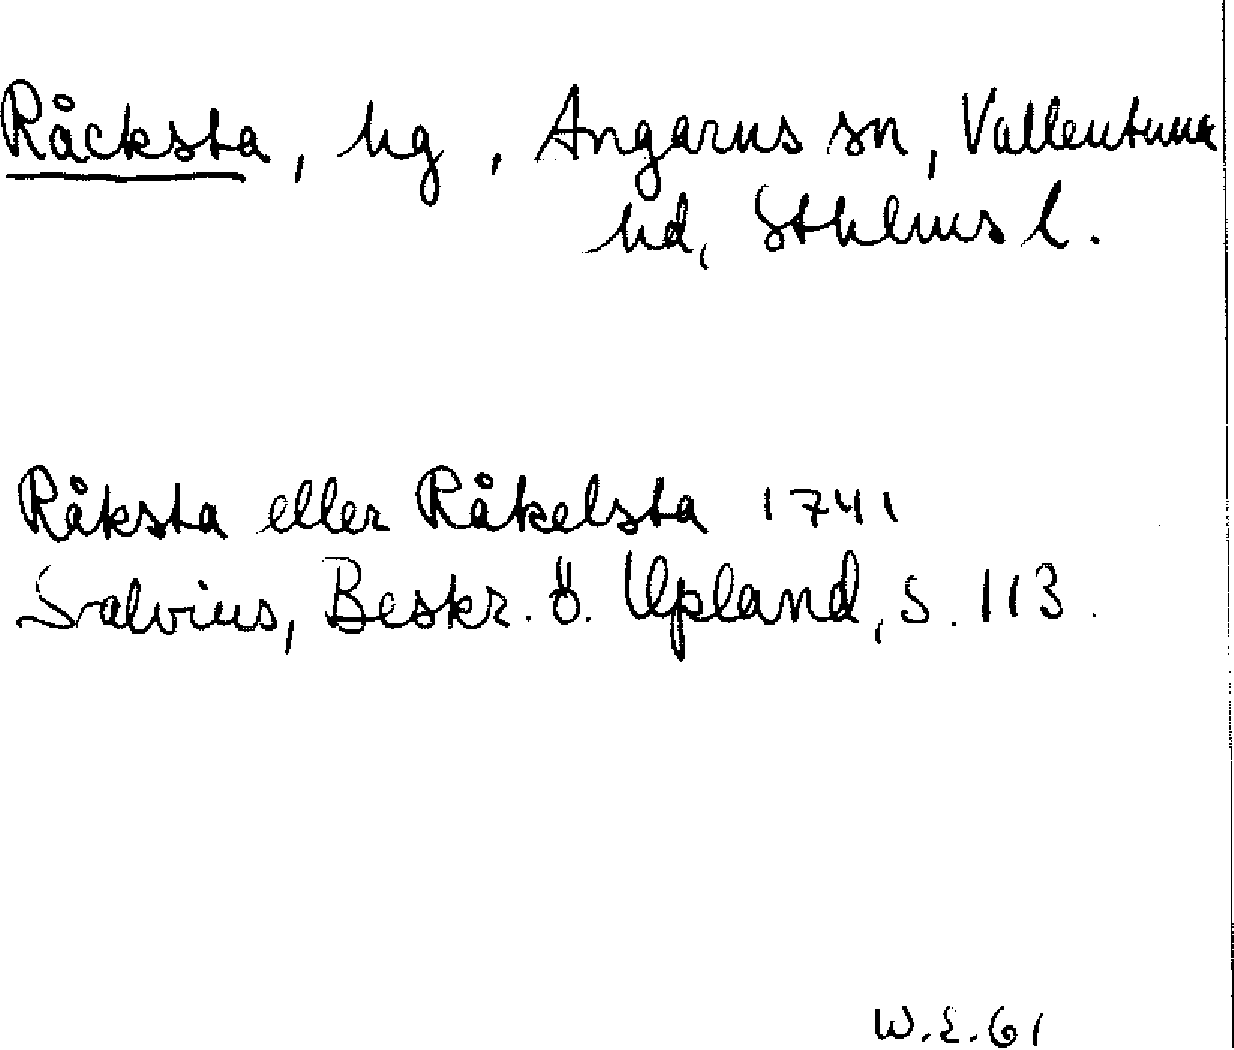 Råcksta, hg, Angarns sn, Vallentuna
hd, Sthlms l.
Råksta eller Råkelsta 1741
Salvius, Beskr. ö. Upland, s. 113.
W.E.61